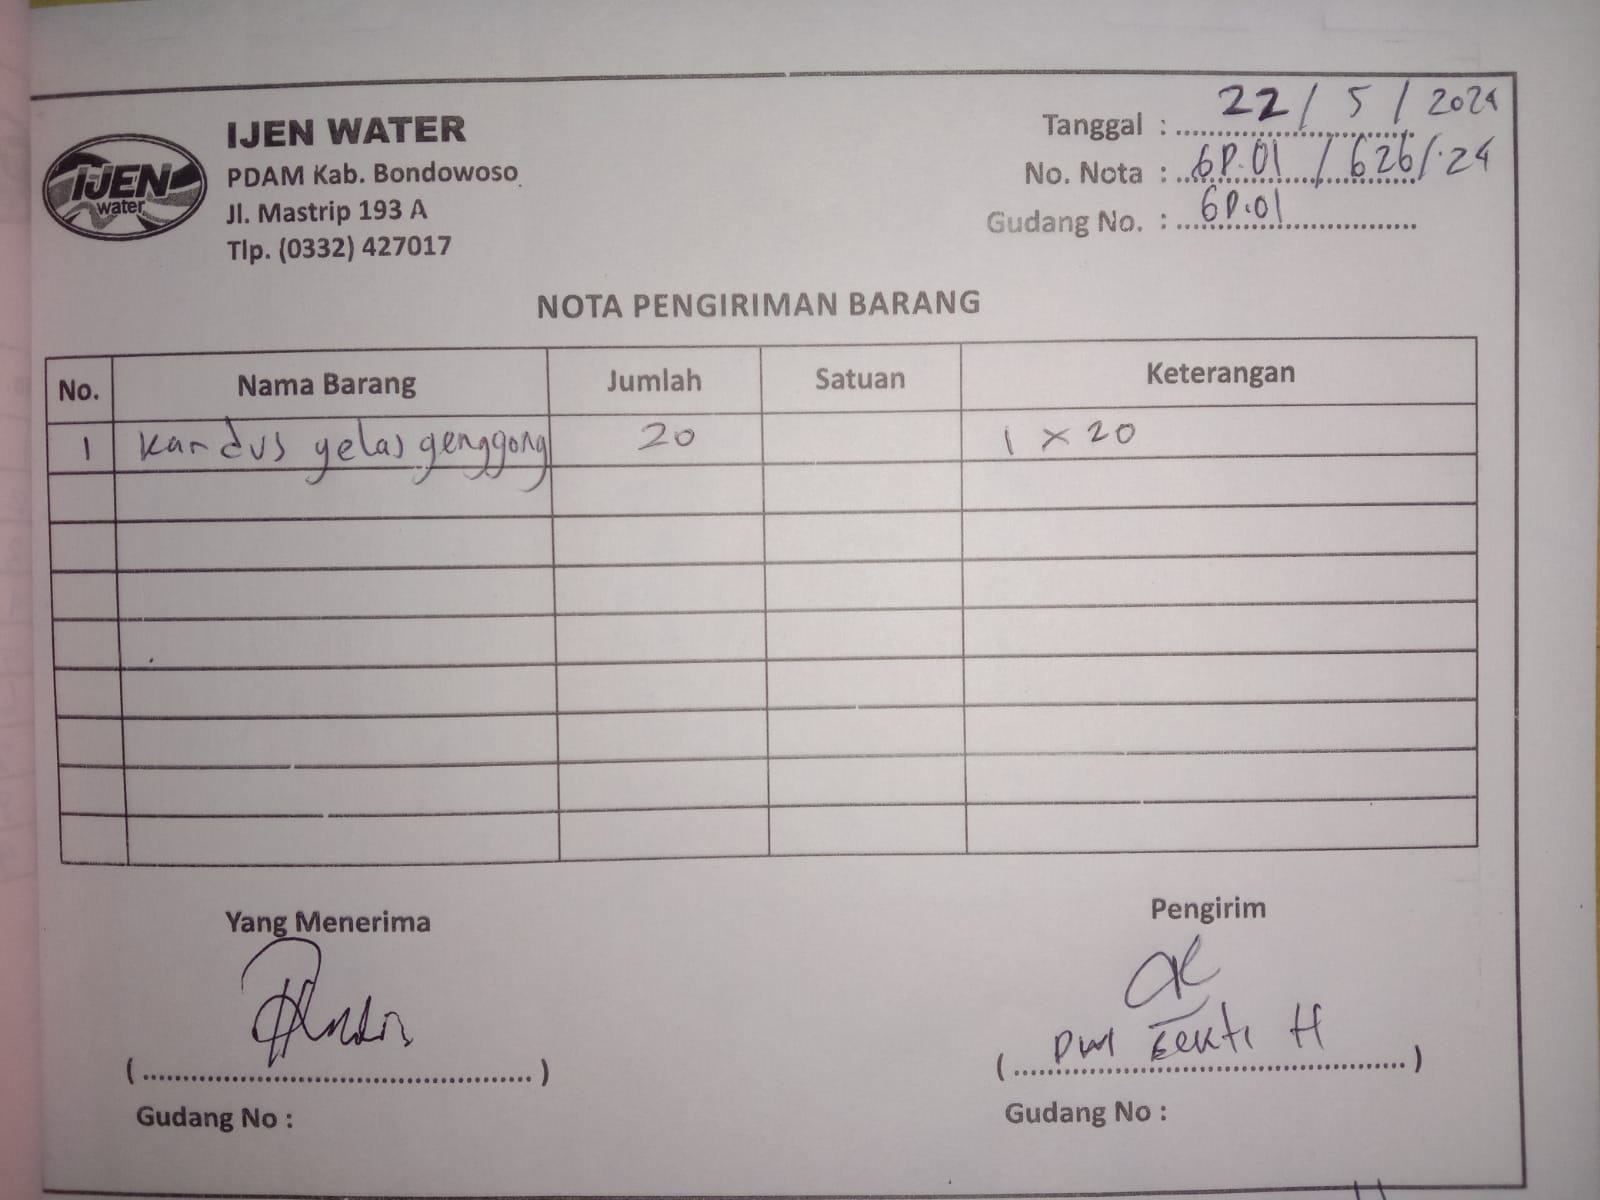 IJEN
water
IJEN WATER
PDAM Kab. Bondowoso
Jl. Mastrip 193 A
Tlp. (0332) 427017
Tanggal : 22 / 5 / 2024
No. Nota : 6P.01 / 626/.24
Gudang No. : 6P.01
NOTA PENGIRIMAN BARANG
No. Nama Barang Jumlah Satuan Keterangan
1 kardus gelas genggong 20 1 x 20
Yang Menerima Pengirim
Dwi Sekti H
Gudang No : Gudang No :